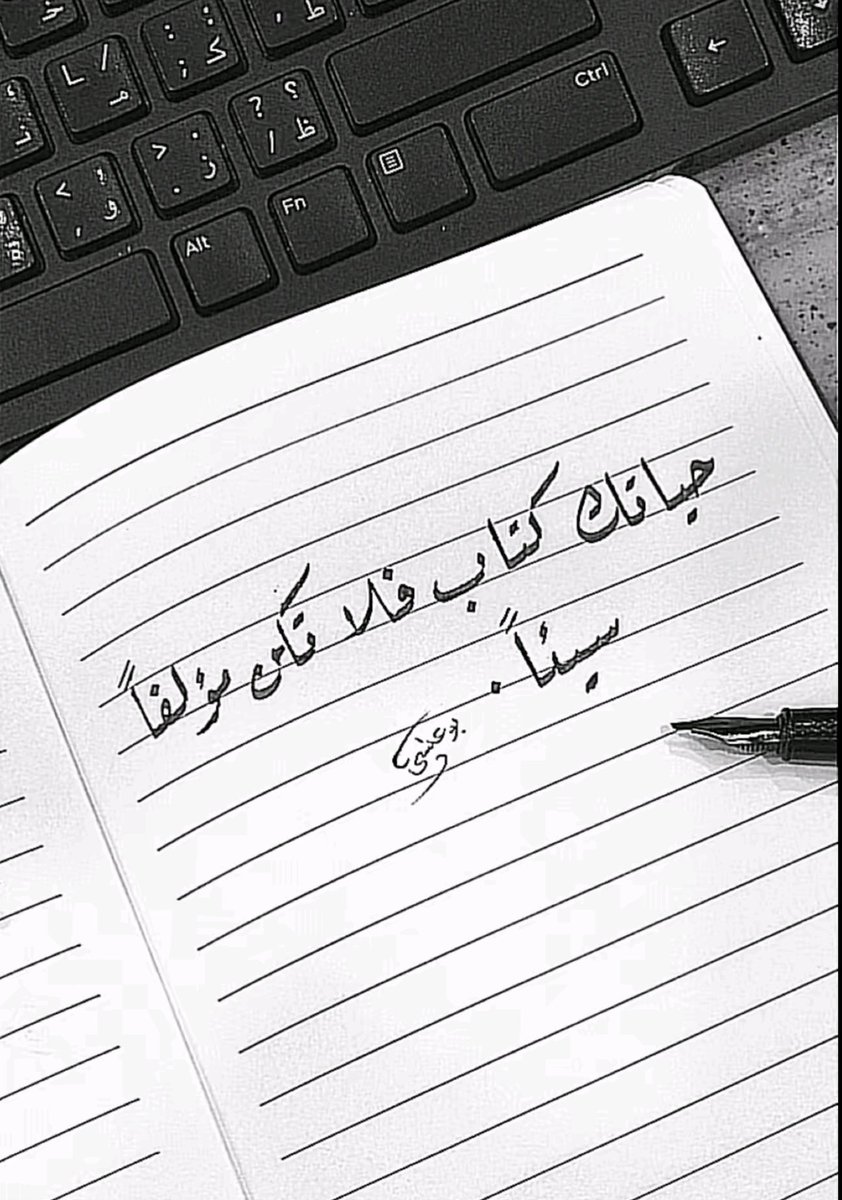 Ctrl
Alt
Fn
حياتك كتاب فلا تكن مؤلفاً
سيئاً .